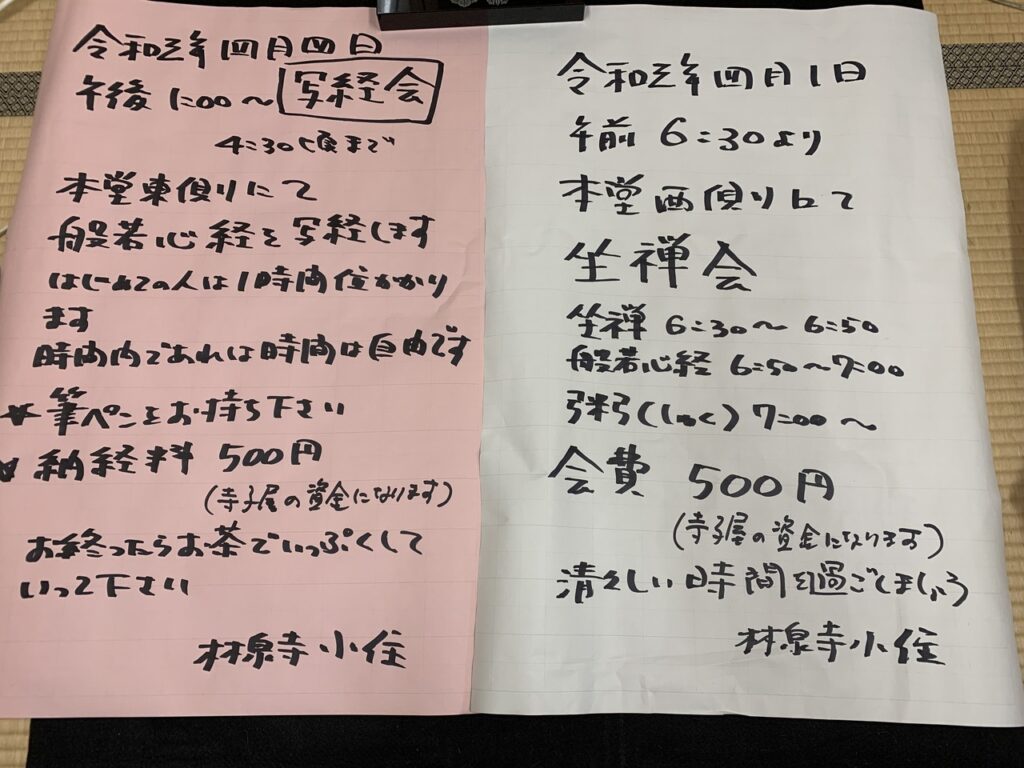 令和三年四月四日
午後1:00〜 写経会
4:30頃まで
本堂東側りにて
般若心経を写経します
はじめての人は1時間位かかり
ます
時間内であれば時間は自由です
＊筆ペンをお持ち下さい
＊納経料 500円
(寺子屋の資金になります)
お終ったらお茶でいっぷくして
いって下さい
林泉寺小住
令和三年四月1日
午前 6:30より
本堂西側りにて
坐禅会
坐禅 6:30〜6:50
般若心経 6:50〜7:00
粥(しゅく) 7:00〜
会費 500円
(寺子屋の資金になります)
清々しい時間を過ごしましょう
林泉寺小住